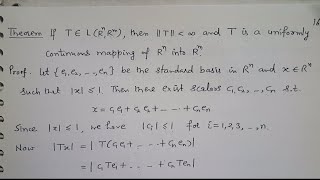 Theorem If T ∈ L(Rⁿ, Rᵐ), then ‖T‖ < ∞ and T is a uniformly
continuous mapping of Rⁿ into Rᵐ.
Proof. Let {e₁, e₂, ..., eₙ} be the standard basis in Rⁿ and x ∈ Rⁿ
such that |x| ≤ 1. Then there exist scalars c₁, c₂, .., cₙ s.t.
x = c₁e₁ + c₂e₂ + --- + cₙeₙ
Since |x| ≤ 1, we have |cᵢ| ≤ 1 for i = 1, 2, 3, --, n.
Now |Tx| = |T(c₁e₁ + ... + cₙeₙ)|
= |c₁Te₁ + ... + cₙTeₙ|